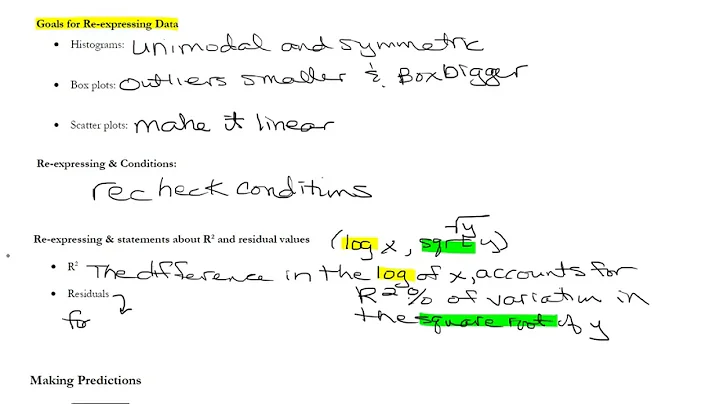 Goals for Re-expressing Data
• Histograms: unimodal and symmetric
• Box plots: outliers smaller & Box bigger
• Scatter plots: make it linear
Re-expressing & Conditions:
recheck conditions
√y
Re-expressing & statements about R² and residual values (log x, sqrt y)
• R² The difference in the log of x, accounts for
R²% of variation in
the square root of y
• Residuals
for
Making Predictions